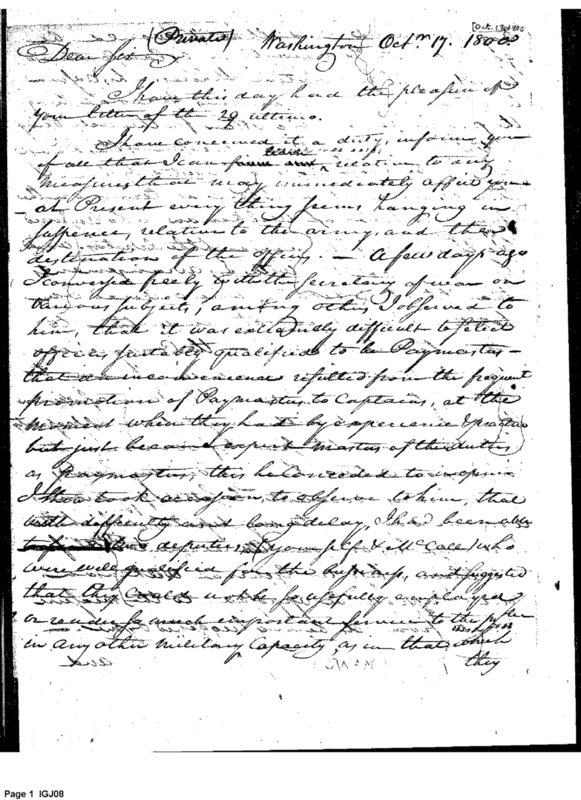 [Oct. 17, 1800]
(Private) Washington Octr 17. 1800
Dear Sir
I have this day had the pleasure of
your letter of the 29 ultimo.
I have conceived it a duty, inform you
of all that I can learn relative to any
measures that may immediately affect you
at Present every thing seems hanging in
suspence, relative to the army, and the
destination of the officers. — A few days ago
I conversed freely with the Secretary of war on
various subjects, among others I observed to
him, that it was exceedingly difficult to select
officers suitably qualified to be Paymasters —
that an inconvenience resulted from the frequent
promotion of Paymasters to Captains, at the
moment when they had by experience & practice
but just became expert masters of the duties
as Paymasters, this he conceded to in opinion
I then took occasion, to observe to him, that
with difficulty and long delay, I had been able
two deputies, (yourself & McCall) who
were well qualified for the business, and suggested
that they could not be so usefully employed
or render so much important service to the
in any other military capacity, as in that which
they
Page 1 IGJ08